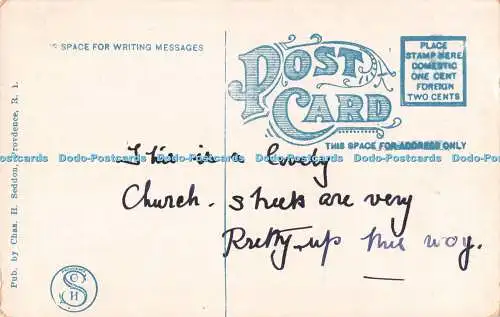 THIS SPACE FOR WRITING MESSAGES
POST
CARD
PLACE
STAMP HERE
DOMESTIC
ONE CENT
FOREIGN
TWO CENTS
THIS SPACE FOR ADDRESS ONLY
Dodo-Postcards Dodo-Postcards Dodo-Postcards Dodo-Postcards Dodo-Postcards
This is a lovely
Church. Streets are very
Pretty up this way.
Pub. by Chas. H. Seddon, Providence, R. I.